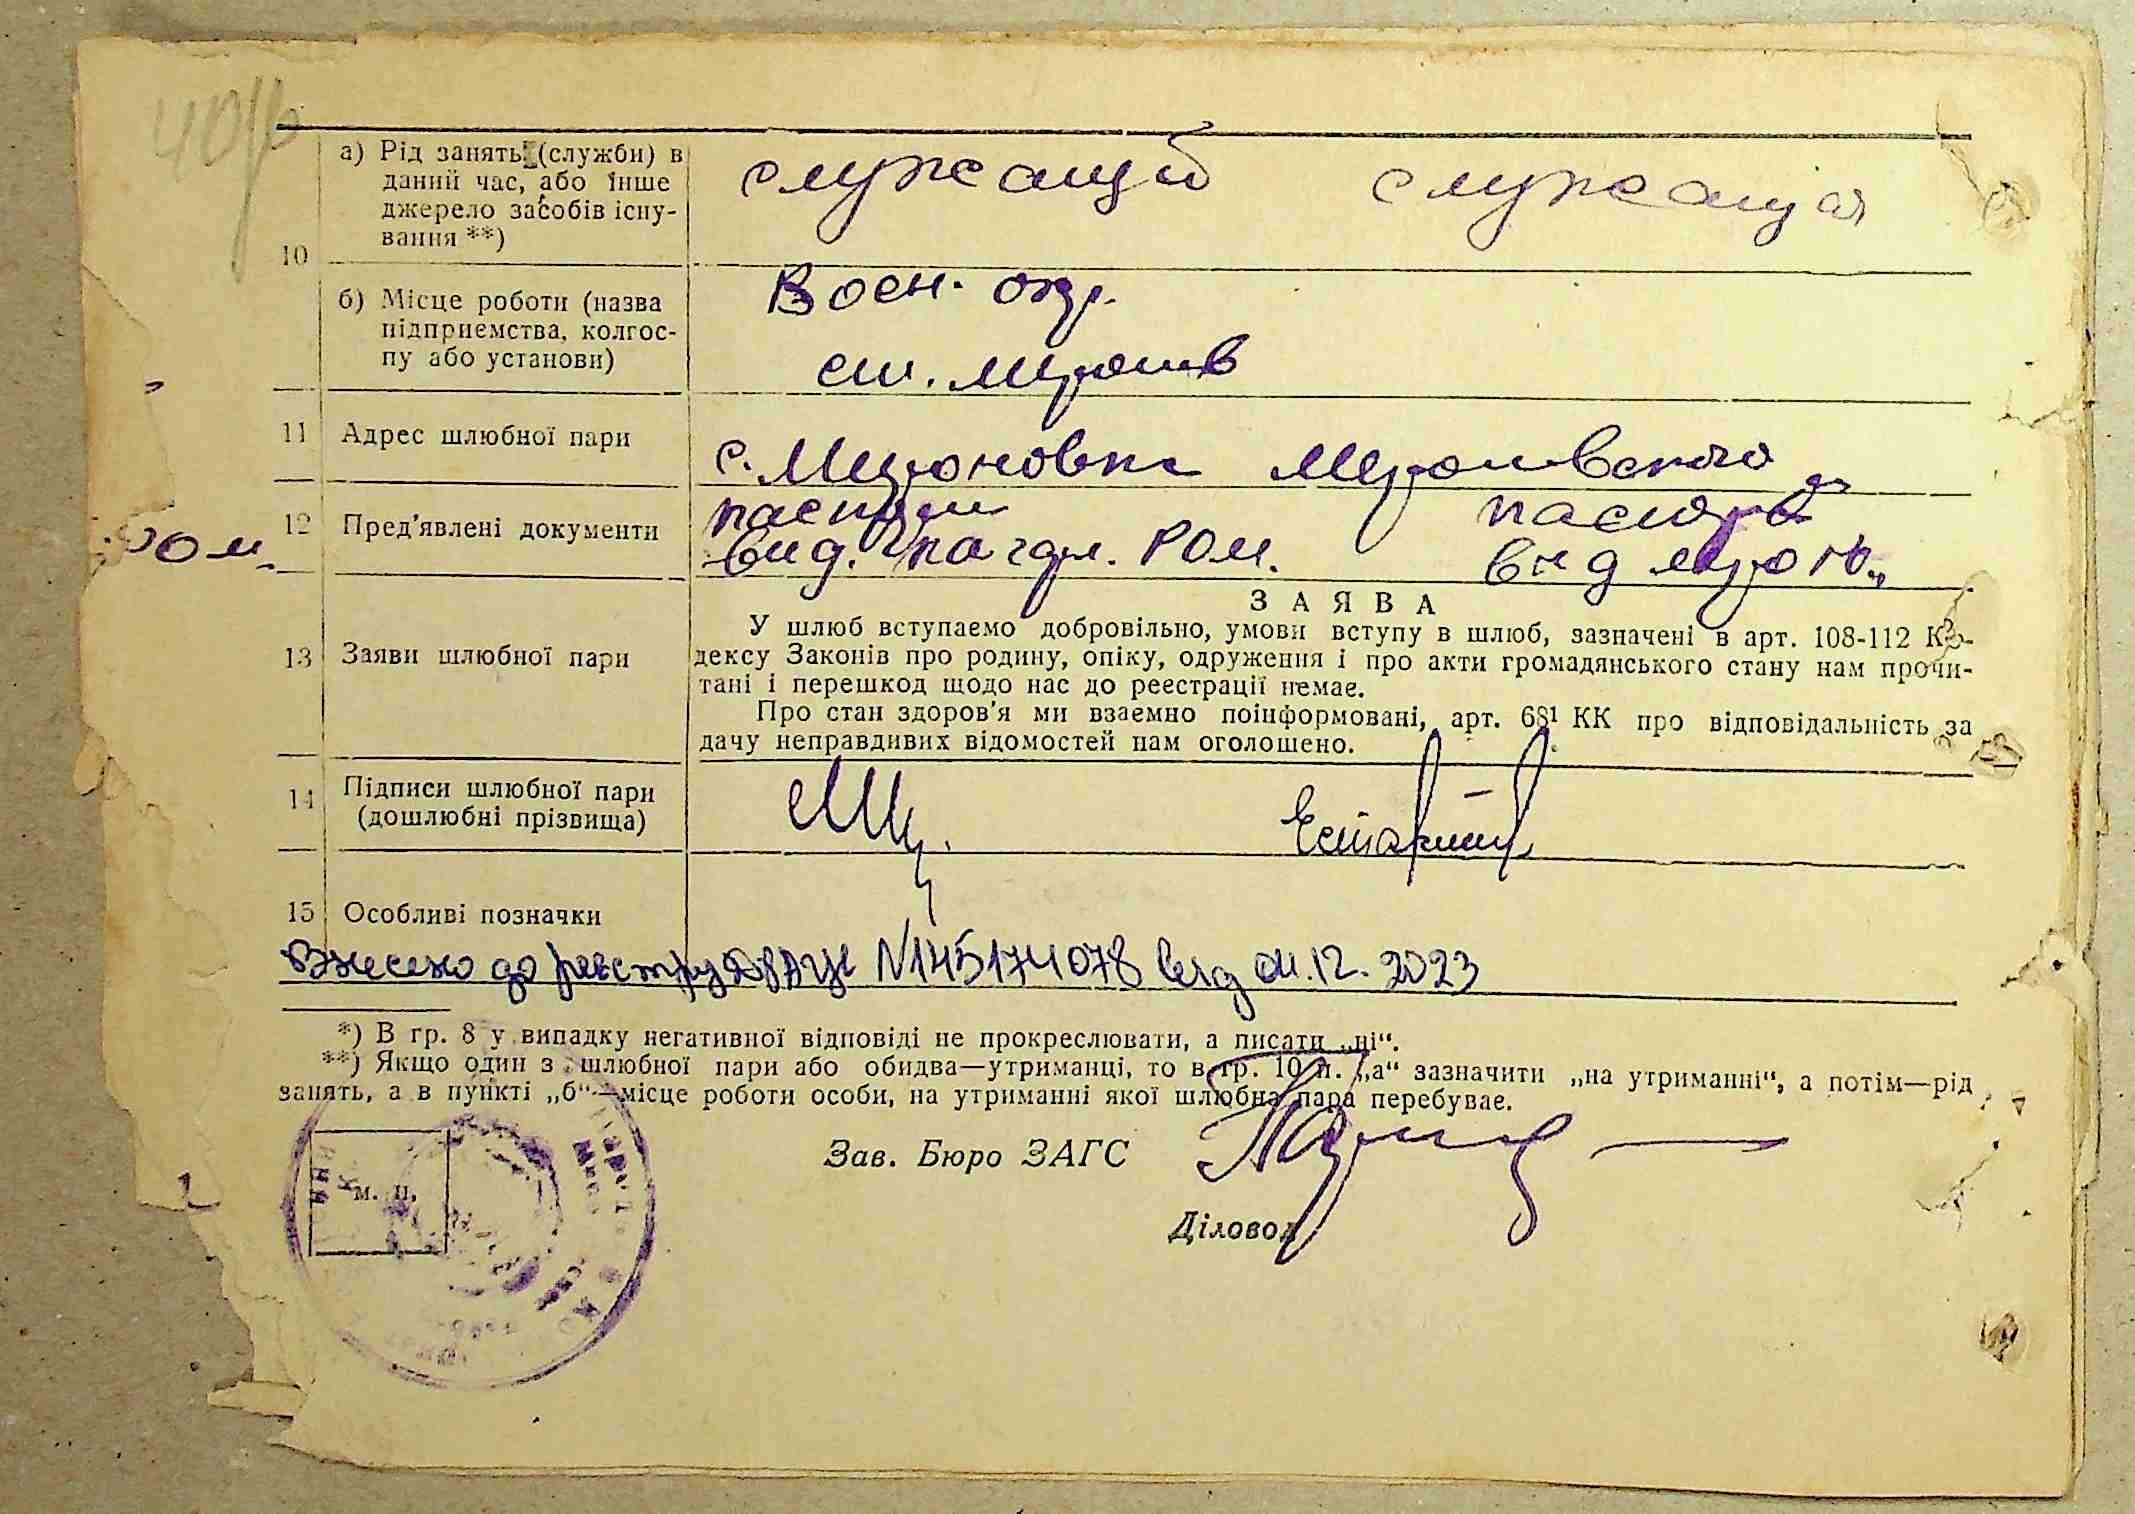 а) Рід занять (служби) в
даний час, або інше
джерело засобів існу-
вання **)
служащий служащая
10
б) Місце роботи (назва
підприємства, колгос-
пу або установи)
Воен. охр.
ст.
11 Адрес шлюбної пари
с. Мироновка Мироновского
12 Пред'явлені документи
паспорт паспорт
вид. РОМ. вид
ЗАЯВА
У шлюб вступаємо добровільно, умови вступу в шлюб, зазначені в арт. 108-112 Ко-
дексу Законів про родину, опіку, одруження і про акти громадянського стану нам прочи-
тані і перешкод щодо нас до реєстрації немає.
Про стан здоров'я ми взаємно поінформовані, арт. 68¹ КК про відповідальність за
дачу неправдивих відомостей нам оголошено.
13 Заяви шлюбної пари
14 Підписи шлюбної пари
(дошлюбні прізвища)
15 Особливі позначки
Внесено до реєстру ДРАЦС N145174078 від 04.12.2023
*) В гр. 8 у випадку негативної відповіді не прокреслювати, а писати „ні“.
**) Якщо один з шлюбної пари або обидва—утриманці, то в гр. 10 п. „а“ зазначити „на утриманні“, а потім—рід
занять, а в пункті „б“—місце роботи особи, на утриманні якої шлюбна пара перебуває.
Зав. Бюро ЗАГС
м. п.
Діловод